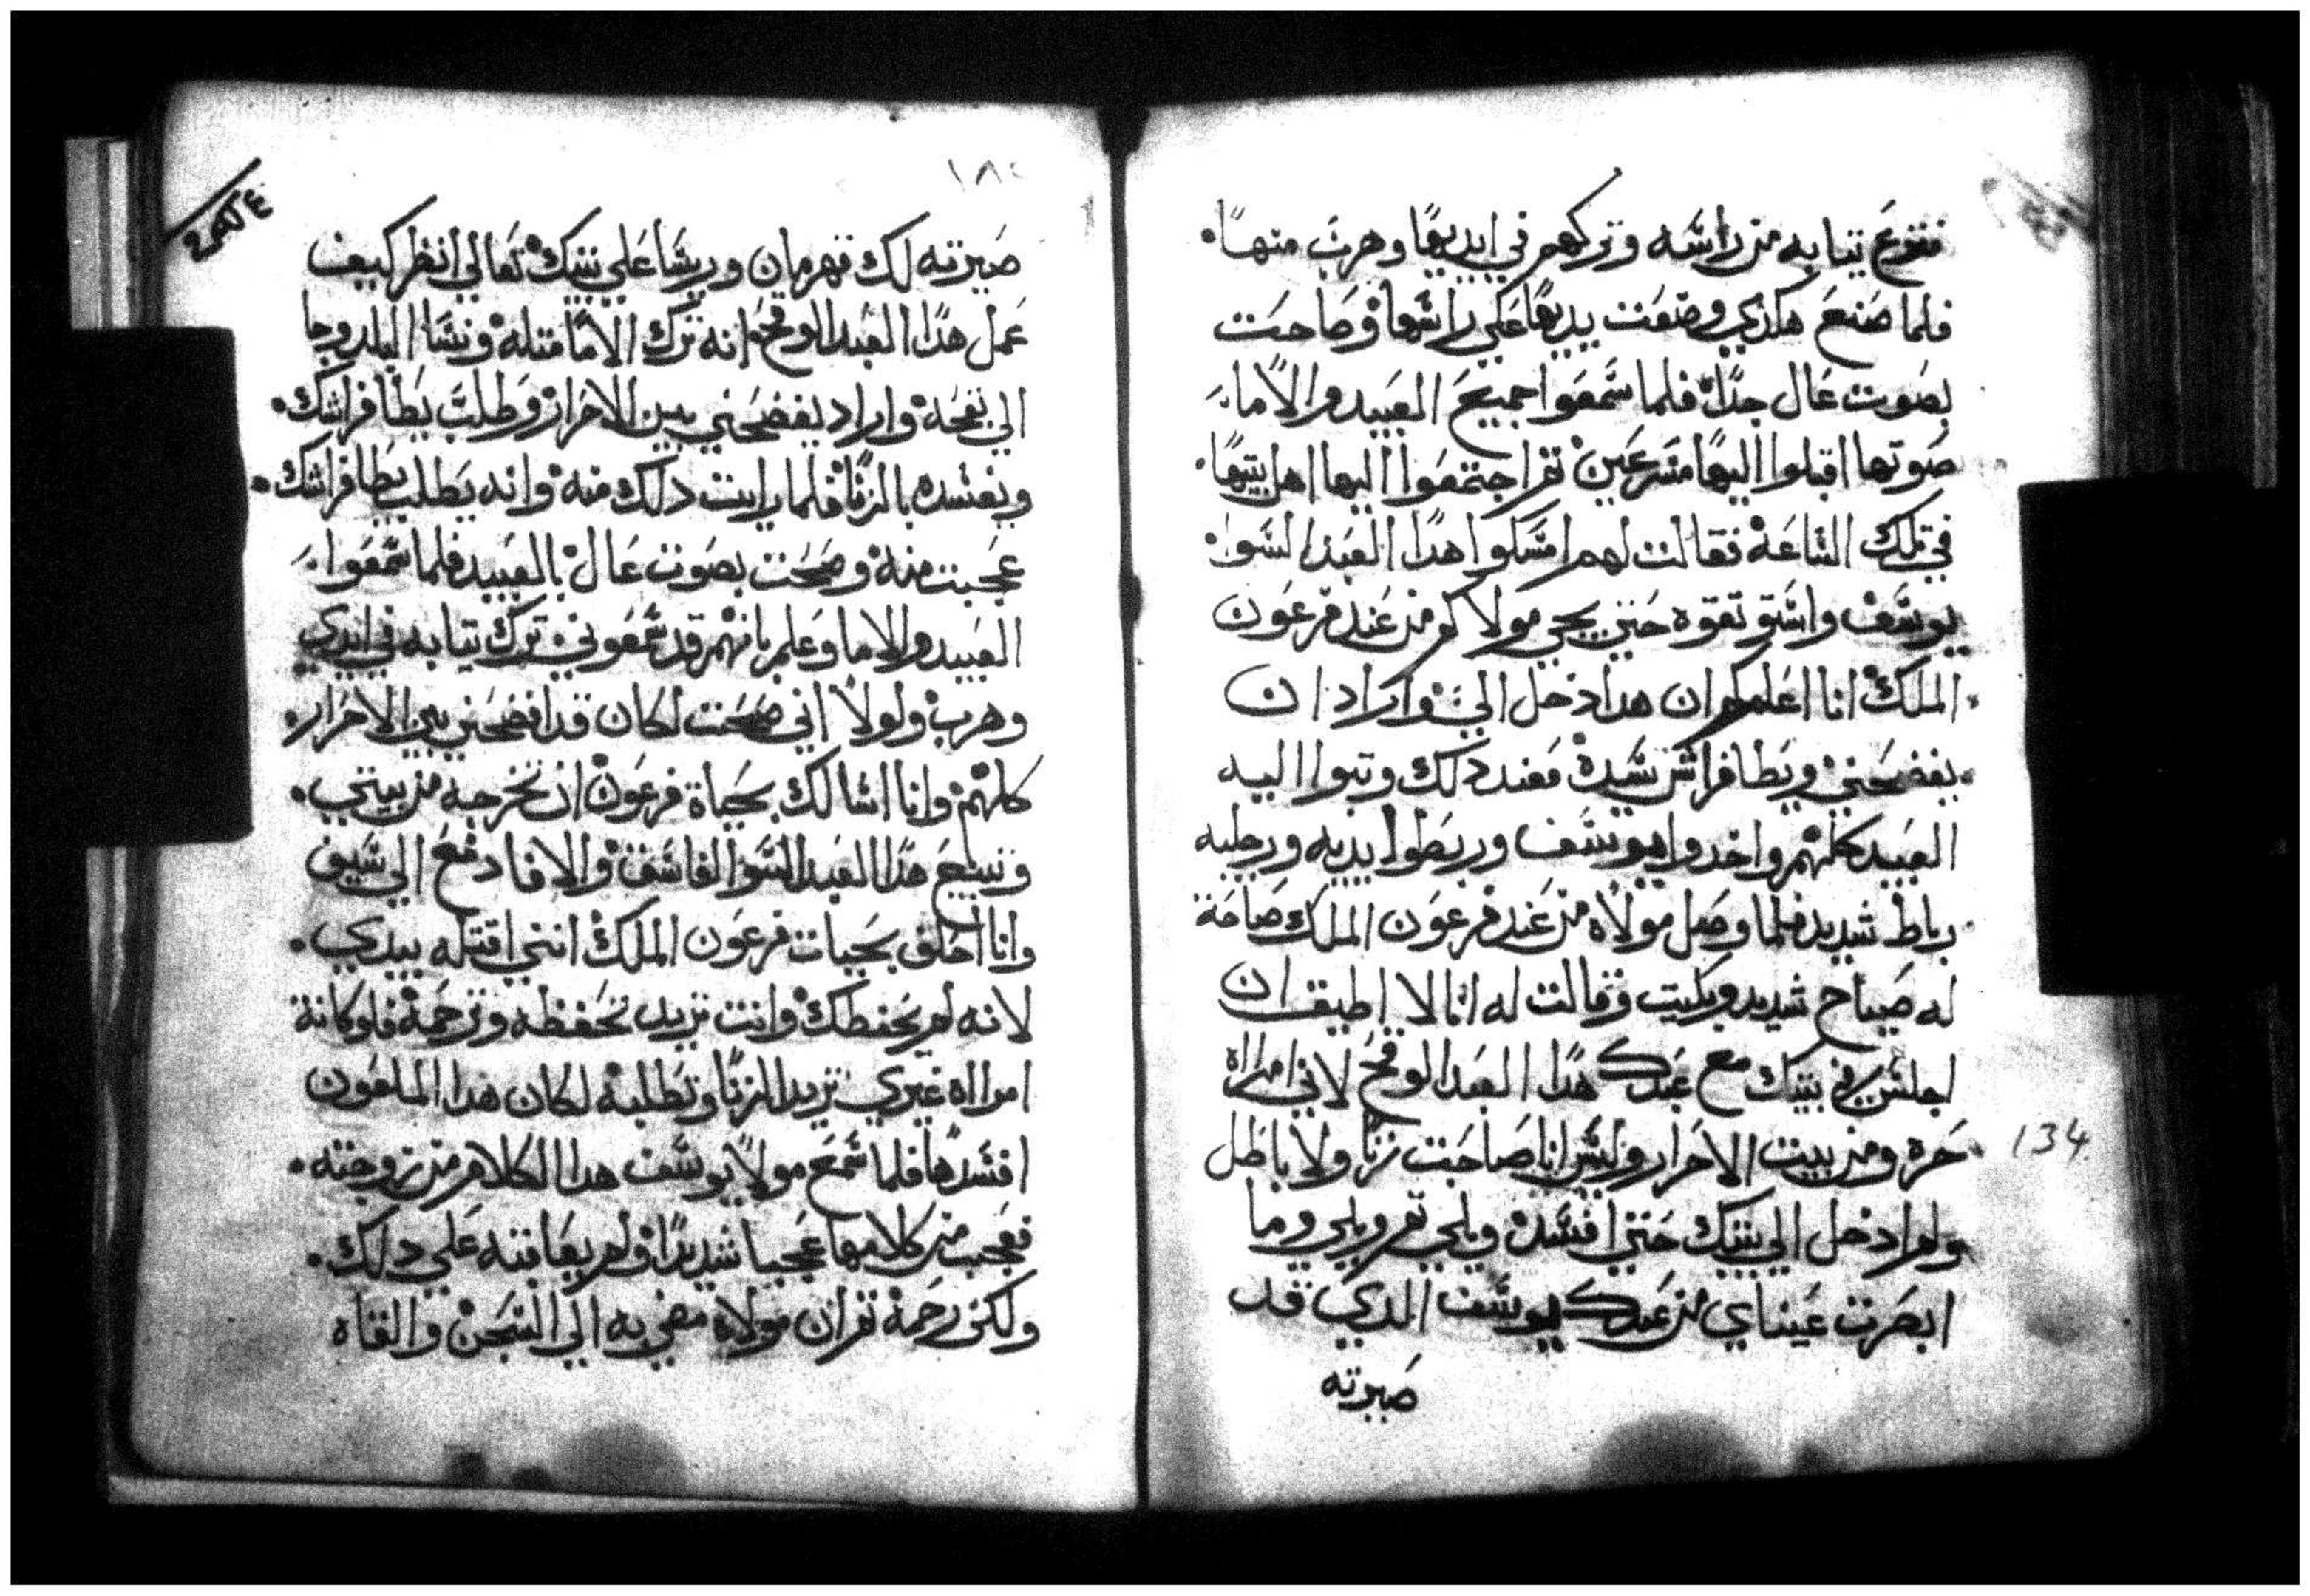 فنزع تيابه من راسه وتركهم في ايديها وهرب منها.
فلما صنع هكذي وضعت يديها علي راسها وصاحت
بصوت عال جدا فلما سمعوا جميع العبيد والاماء
صوتها اقبلوا اليها مسرعين تم اجتمعوا اليها اهل بيتها.
في تلك الساعة فقالت لهم امسكوا هدا العبد السوا
يوسف واستوتقوه حتي يجي مولاكم من عند فرعون
الملك انا اعلمكم ان هدا دخل الي واراد ان
يفضحني ويطا فراش سيده فعند دلك وتبوا اليه
العبيد كلهم واخدوا يوسف وربطوا يديه ورجليه
رباط شديد فلما وصل مولاه من عند فرعون الملك صاحة
له صياح شديد وبكيت وقالت له انا لا اطيق ان
اجلس في بيتك مع عبدك هدا العبد الوقح لاني امرااة
حره ومن بيت الاحرار وليس انا صاحبت زنا ولا باطل
ولم ادخل الي بيتك حتي افسده ويلي تم ويلي وما
ابصرت عيناي من عبدك يوسف الدي قد
صيرته
134
١٨٤
صيرته لك قهرمان وريسا علي بيتك تعالي انظر كيف
عمل هدا العبد الوقح انه ترك الاما متله ونسا البلد وجا
الي بفجه واراد يفضحني بين الاحرار وطلب يطا فراشك.
ويفسده بالزنا فلما رايت دلك منه وانه يطلب يطا فراشك.
عجبت منه وصحت بصوت عال بالعبيد فلما سمعوا
العبيد والاما وعلم بانهم قد سمعوني ترك تيابه في ايدي
وهرب ولولا اني صحت لكان قد افضحني بين الاحرار.
كلهم وانا اسالك بحياة فرعون ان تخرجه من بيتي.
وتبيع هدا العبد السوا الفاسق والا فادفع الي سيف
وانا احلف بحيات فرعون الملك انني اقتله بيدي.
لانه لم يحفظك وانت تريد تحفظه وترحمه فلو كانة
امرااه غيري تريد الزنا وتطلبه لكان هدا الملعون
افسدها فلما سمع مولا يوسف هدا الكلام من زوجته.
فعجب من كلامها عجبا شديدا ولم يعاقبه علي دلك.
ولكن رحمه تم ان مولاه مضي به الي السجن والقاه